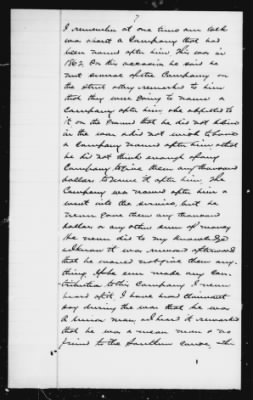 7
I remember at one time our talk
was about a Company that had
been named after him this was in
1862 On this occasion he said he
met some of the Company on
the street & they remarked to him
that they were going to name a
Company after him, he objected to
it on the ground that he did not believe
in the war & did not wish to have
a Company named after him & that
he did not think enough of any
Company to give them any thousand
dollars to name it after him. The
Company was named after him &
went into the service, but he
never gave them any thousand
dollars or any other sum of money
He never did to my knowledge
I know it was rumored afterward
that he would not give them any
thing. If he ever made any con-
tribution to this Company I never
heard of it. I have heard
say during the war that he was
a Union man, & I heard it remarked
that he was a mean man & no
friend to the Southern cause, & the